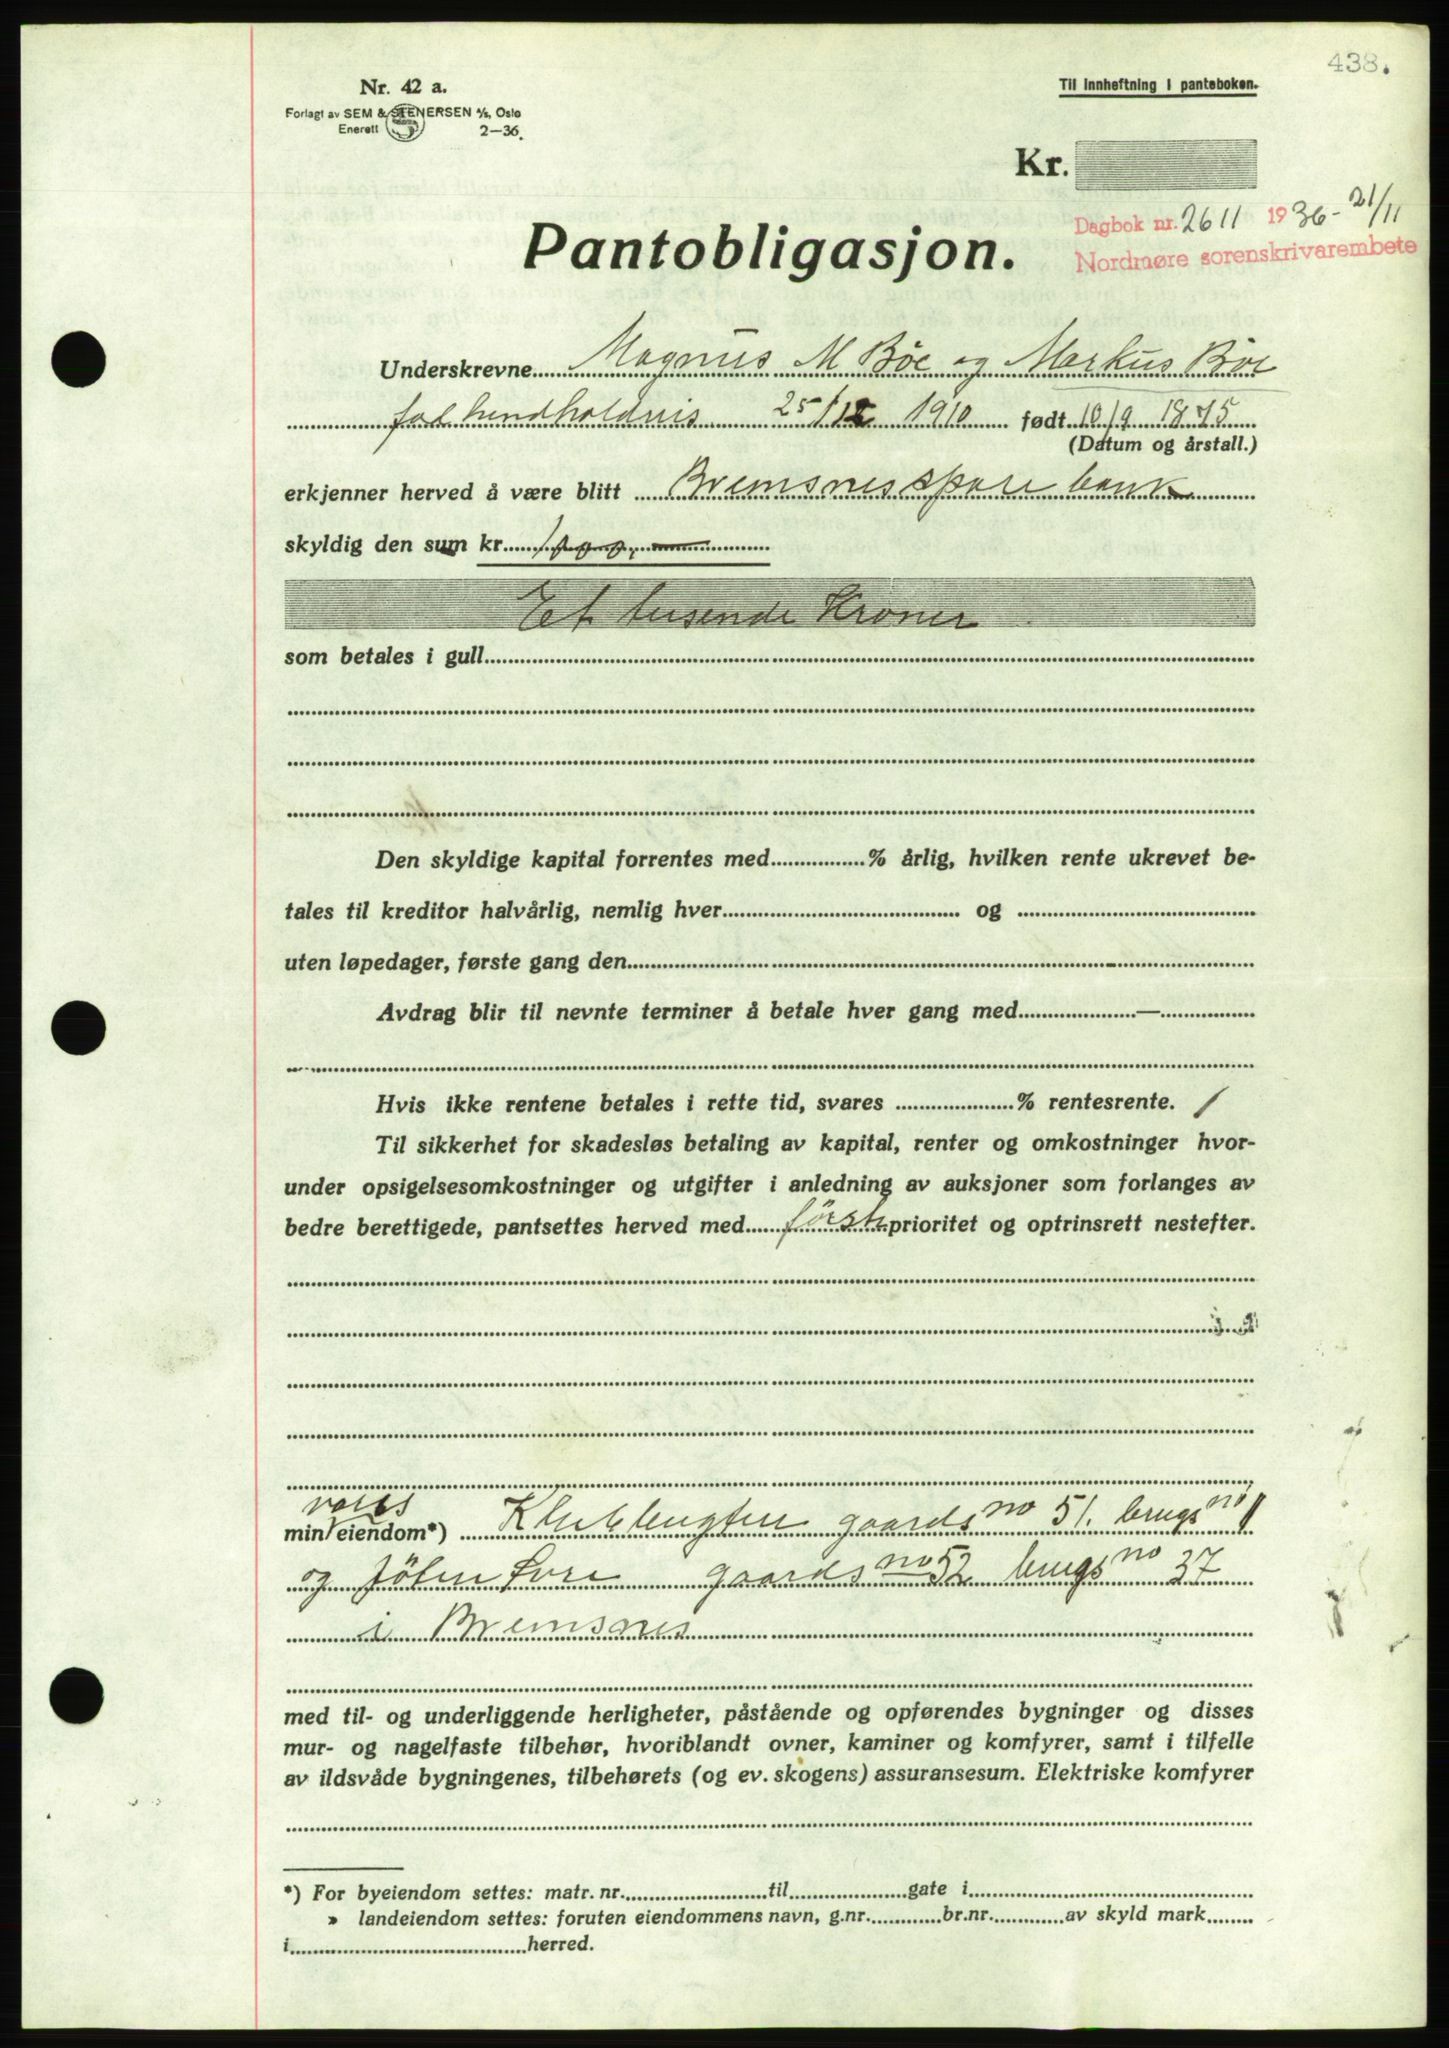 438.
Nr. 42 a.
Til innheftning i panteboken.
Forlagt av SEM & STENERSEN A/S, Oslo
Enerett 2—36.
Kr.
Dagbok nr. 2611 1936 - 21/11
Nordmøre sorenskrivarembete
Pantobligasjon.
Underskrevne Magnus M Bøe og Markus Bøe
henholdsvis 25/12 1910 født 10/9 1875
(Datum og årstall.)
erkjenner herved å være blitt Bremsnes sparebank
skyldig den sum kr. 1000,—
Et tusende Kroner
som betales i gull
Den skyldige kapital forrentes med % årlig, hvilken rente ukrevet be-
tales til kreditor halvårlig, nemlig hver og
uten løpedager, første gang den
Avdrag blir til nevnte terminer å betale hver gang med —
Hvis ikke rentene betales i rette tid, svares % rentesrente.
Til sikkerhet for skadesløs betaling av kapital, renter og omkostninger hvor-
under opsigelsesomkostninger og utgifter i anledning av auksjoner som forlanges av
bedre berettigede, pantsettes herved med første prioritet og optrinsrett nestefter.
vores
min eiendom*) gaards no 51. brugs no 11
og gaards no 52 brugs no 37
i Bremsnes
med til- og underliggende herligheter, påstående og opførendes bygninger og disses
mur- og nagelfaste tilbehør, hvoriblandt ovner, kaminer og komfyrer, samt i tilfelle
av ildsvåde bygningenes, tilbehørets (og ev. skogens) assuransesum. Elektriske komfyrer
*) For byeiendom settes: matr. nr. til gate i
» landeiendom settes: foruten eiendommens navn, g.nr. br.nr. av skyld mark
i herred.